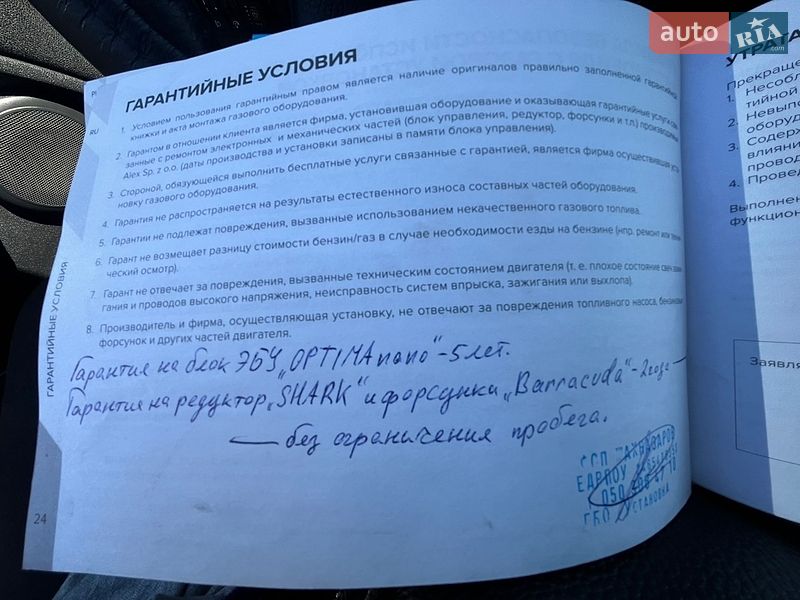 auto RIA .com
PL
RU
ГАРАНТИЙНЫЕ УСЛОВИЯ
1. Условием пользования гарантийным правом является наличие оригиналов правильно заполненной гарантийной
книжки и акта монтажа газового оборудования.
2. Гарантом в отношении клиента является фирма, установившая оборудование и оказывающая гарантийные услуги, свя-
занные с ремонтом электронных и механических частей (блок управления, редуктор, форсунки и т.п.) производимых
Alex Sp. z o.o. (даты производства и установки записаны в памяти блока управления).
3. Стороной, обязующейся выполнить бесплатные услуги связанные с гарантией, является фирма осуществившая уста-
новку газового оборудования.
4. Гарантия не распространяется на результаты естественного износа составных частей оборудования.
5. Гарантии не подлежат повреждения, вызванные использованием некачественного газового топлива.
6. Гарант не возмещает разницу стоимости бензин/газ в случае необходимости езды на бензине (нпр. ремонт или техни-
ческий осмотр).
7. Гарант не отвечает за повреждения, вызванные техническим состоянием двигателя (т. е. плохое состояние свеч зажи-
гания и проводов высокого напряжения, неисправность систем впрыска, зажигания или выхлопа).
8. Производитель и фирма, осуществляющая установку, не отвечают за повреждения топливного насоса, бензиновых
форсунок и других частей двигателя.
Гарантия на блок ЭБУ „OPTIMA nano" - 5 лет.
Гарантия на редуктор „SHARK" и форсунки „Barracuda" - 2 года —
— без ограничения пробега.
ЕДРПОУ
050
ГБО УСТАНОВКА
ГАРАНТИЙНЫЕ УСЛОВИЯ
24
УТРАТА
Прекраще
1. Несобл
тийной
2. Невыпо
оборуд
3. Содерж
влияни
провод
4. Провед
Выполнен
функцион
Заявля